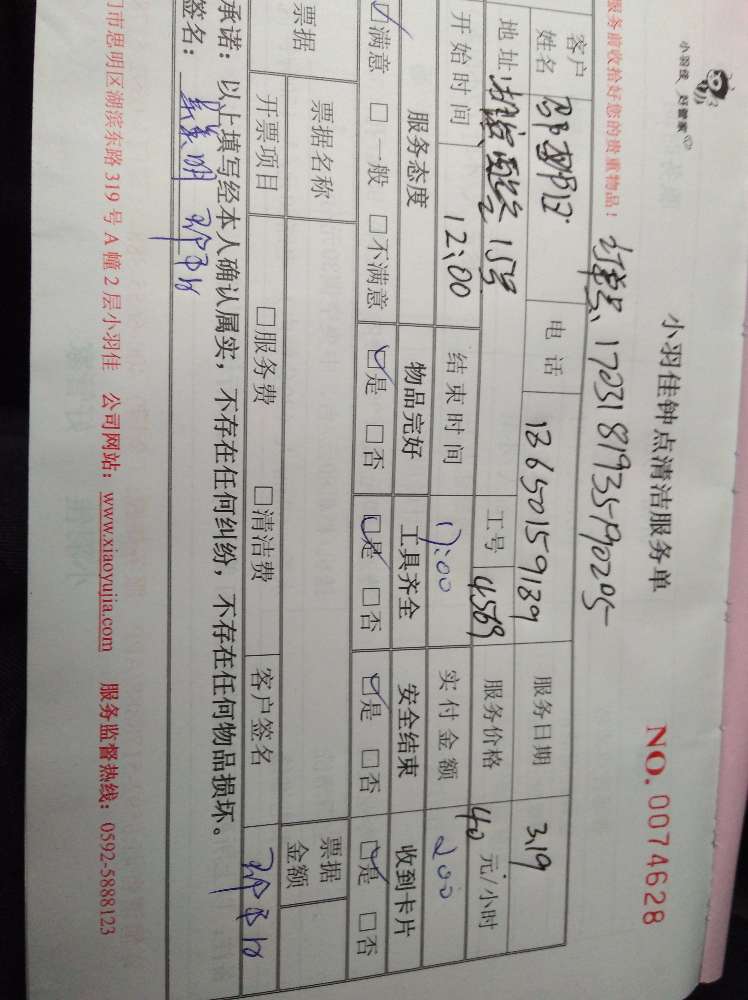 小羽佳 好管家
小羽佳钟点清洁服务单
NO. 0074628
服务前收拾好您的贵重物品！
170318193590205
客户姓名 电话 13650159189 服务日期 3.19
地址 15号 工号 4569 服务价格 40 元/小时
开始时间 12:00 结束时间 17:00 实付金额 200
服务态度 物品完好 工具齐全 安全结束 收到卡片
☑满意 □一般 □不满意 ☑是 □否 ☑是 □否 ☑是 □否 ☑是 □否
票据 票据名称 票据金额
开票项目 □服务费 □清洁费 客户签名
承诺：以上填写经本人确认属实，不存在任何纠纷，不存在任何物品损坏。
签名：
门市思明区湖滨东路 319 号 A 幢 2 层小羽佳 公司网站：www.xiaoyujia.com 服务监督热线：0592-5888123